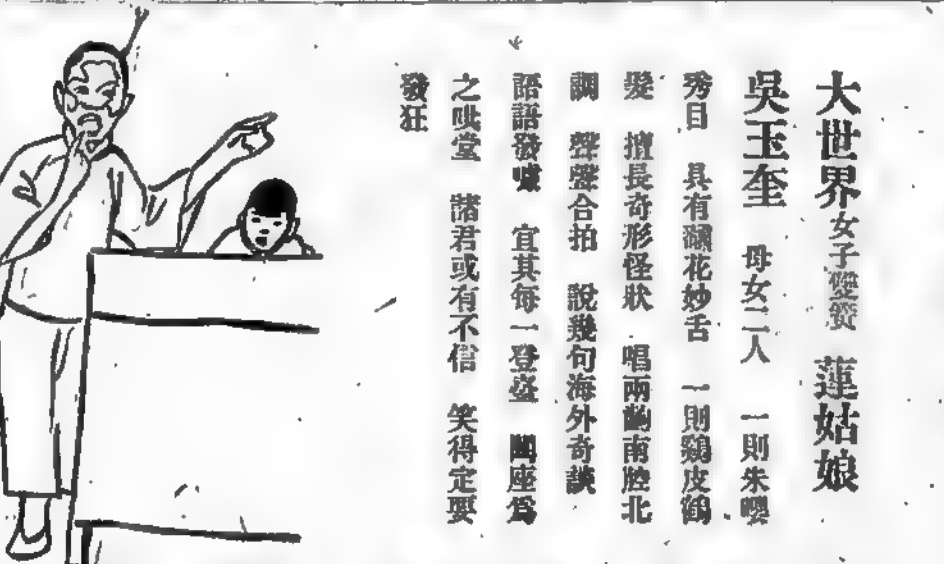 大世界女子雙簧 蓮姑娘
吳玉奎 母女二人 一則朱唇
秀目 具有粲花妙舌 一則鷄皮鶴
髮 擅長奇形怪狀 唱兩齣南腔北
調 聲聲合拍 說幾句海外奇談
語語發噱 宜其每一登臺 闔座爲
之哄堂 諸君或有不信 笑得定要
發狂